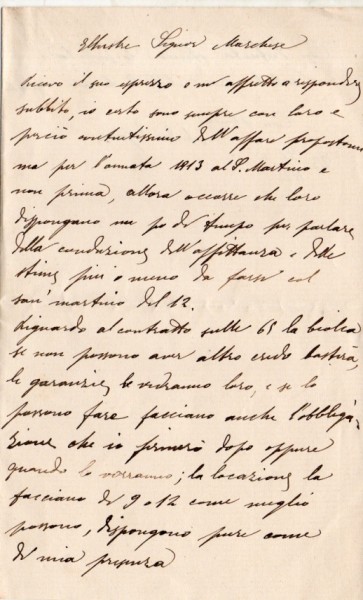 Illustre Signor Marchese
Ricevo il suo espresso e m'affretto a rispondere
subbito, io certo sono sempre con loro e
perciò contentissimo dell'affare propostomi
ma per l'annata 1813 al S. Martino e
non prima, allora occorre che loro
dispongano un po di tempo per parlare
della conduzione dell'affittanza e delle
stime più o meno da farsi col
san martino del 12.
Riguardo al contratto sulle 65 la biolca
se non possono aver altro credo bastirà,
le garanzie le vedranno loro, e se lo
possono fare facciano anche l'obbliga-
zione che io firmerò dopo oppure
quando lo vorranno; la locazione la
facciano di 9 o 12 come meglio
possono, dispongono pure come
di mia presenza